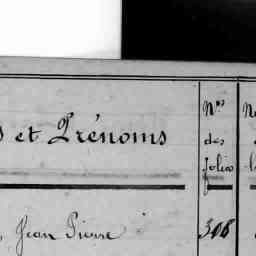 s et Prénoms
Nos
des
folios
, Jean Pierre
308